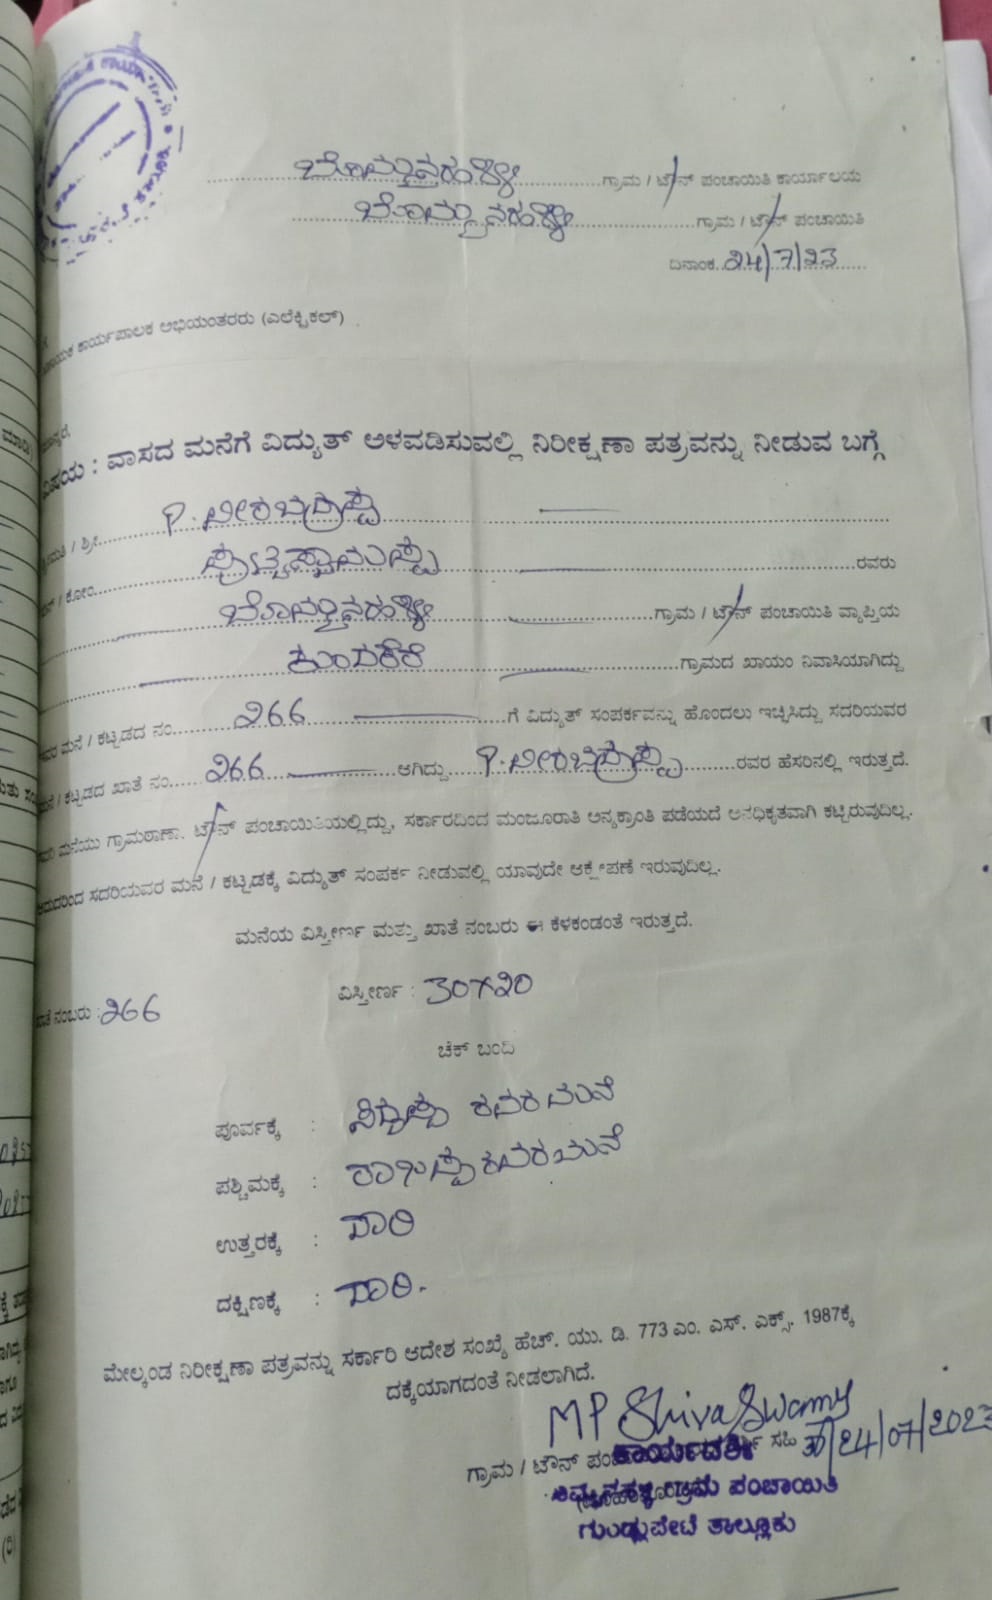 ಬೊಮ್ಮನಹಳ್ಳಿ ಗ್ರಾಮ / ಟೌನ್ ಪಂಚಾಯಿತಿ ಕಾರ್ಯಾಲಯ
ಬೊಮ್ಮನಹಳ್ಳಿ ಗ್ರಾಮ / ಟೌನ್ ಪಂಚಾಯಿತಿ
ದಿನಾಂಕ. 24/7/23
ಕಾರ್ಯಪಾಲಕ ಅಭಿಯಂತರರು (ಎಲೆಕ್ಟ್ರಿಕಲ್)
ವಿಷಯ : ವಾಸದ ಮನೆಗೆ ವಿದ್ಯುತ್ ಅಳವಡಿಸುವಲ್ಲಿ ನಿರೀಕ್ಷಣಾ ಪತ್ರವನ್ನು ನೀಡುವ ಬಗ್ಗೆ
/ ಶ್ರೀ. P. ವೀರಭದ್ರಪ್ಪ
/ ಕೋಂ. ಪುಟ್ಟಸ್ವಾಮಪ್ಪ ರವರು
ಬೊಮ್ಮನಹಳ್ಳಿ ಗ್ರಾಮ / ಟೌನ್ ಪಂಚಾಯಿತಿ ವ್ಯಾಪ್ತಿಯ
ಕುಂದಕೆರೆ ಗ್ರಾಮದ ಖಾಯಂ ನಿವಾಸಿಯಾಗಿದ್ದು
ಮನೆ / ಕಟ್ಟಡದ ನಂ. 266 ಗೆ ವಿದ್ಯುತ್ ಸಂಪರ್ಕವನ್ನು ಹೊಂದಲು ಇಚ್ಛಿಸಿದ್ದು ಸದರಿಯವರ
ಮನೆ / ಕಟ್ಟಡದ ಖಾತೆ ನಂ. 266 ಆಗಿದ್ದು P. ವೀರಭದ್ರಪ್ಪ ರವರ ಹೆಸರಿನಲ್ಲಿ ಇರುತ್ತದೆ.
ಮನೆಯು ಗ್ರಾಮಠಾಣಾ. ಟೌನ್ ಪಂಚಾಯಿತಿಯಲ್ಲಿದ್ದು, ಸರ್ಕಾರದಿಂದ ಮಂಜೂರಾತಿ ಅನ್ಯಕ್ರಾಂತಿ ಪಡೆಯದೆ ಅನಧಿಕೃತವಾಗಿ ಕಟ್ಟಿರುವುದಿಲ್ಲ.
ಆದುದರಿಂದ ಸದರಿಯವರ ಮನೆ / ಕಟ್ಟಡಕ್ಕೆ ವಿದ್ಯುತ್ ಸಂಪರ್ಕ ನೀಡುವಲ್ಲಿ ಯಾವುದೇ ಆಕ್ಷೇಪಣೆ ಇರುವುದಿಲ್ಲ.
ಮನೆಯ ವಿಸ್ತೀರ್ಣ ಮತ್ತು ಖಾತೆ ನಂಬರು ಈ ಕೆಳಕಂಡಂತೆ ಇರುತ್ತದೆ.
ಖಾತೆ ನಂಬರು : 266 ವಿಸ್ತೀರ್ಣ : 30×20
ಚೆಕ್ ಬಂದಿ
ಪೂರ್ವಕ್ಕೆ : ಸಿದ್ದಪ್ಪ ರವರ ಮನೆ
ಪಶ್ಚಿಮಕ್ಕೆ : ರಾಜಪ್ಪ ರವರ ಮನೆ
ಉತ್ತರಕ್ಕೆ : ದಾರಿ
ದಕ್ಷಿಣಕ್ಕೆ : ದಾರಿ.
ಮೇಲ್ಕಂಡ ನಿರೀಕ್ಷಣಾ ಪತ್ರವನ್ನು ಸರ್ಕಾರಿ ಆದೇಶ ಸಂಖ್ಯೆ ಹೆಚ್. ಯು. ಡಿ. 773 ಎಂ. ಎಸ್. ಎಕ್ಸ್. 1987ಕ್ಕೆ
ದಕ್ಕೆಯಾಗದಂತೆ ನೀಡಲಾಗಿದೆ.
MP Shiva Swamy
ಗ್ರಾಮ / ಟೌನ್ ಸಹಿ 24/07/2023
ಕಾರ್ಯದರ್ಶಿ
ಬೊಮ್ಮನಹಳ್ಳಿ ಗ್ರಾಮ ಪಂಚಾಯಿತಿ
ಗುಂಡ್ಲುಪೇಟೆ ತಾಲ್ಲೂಕು